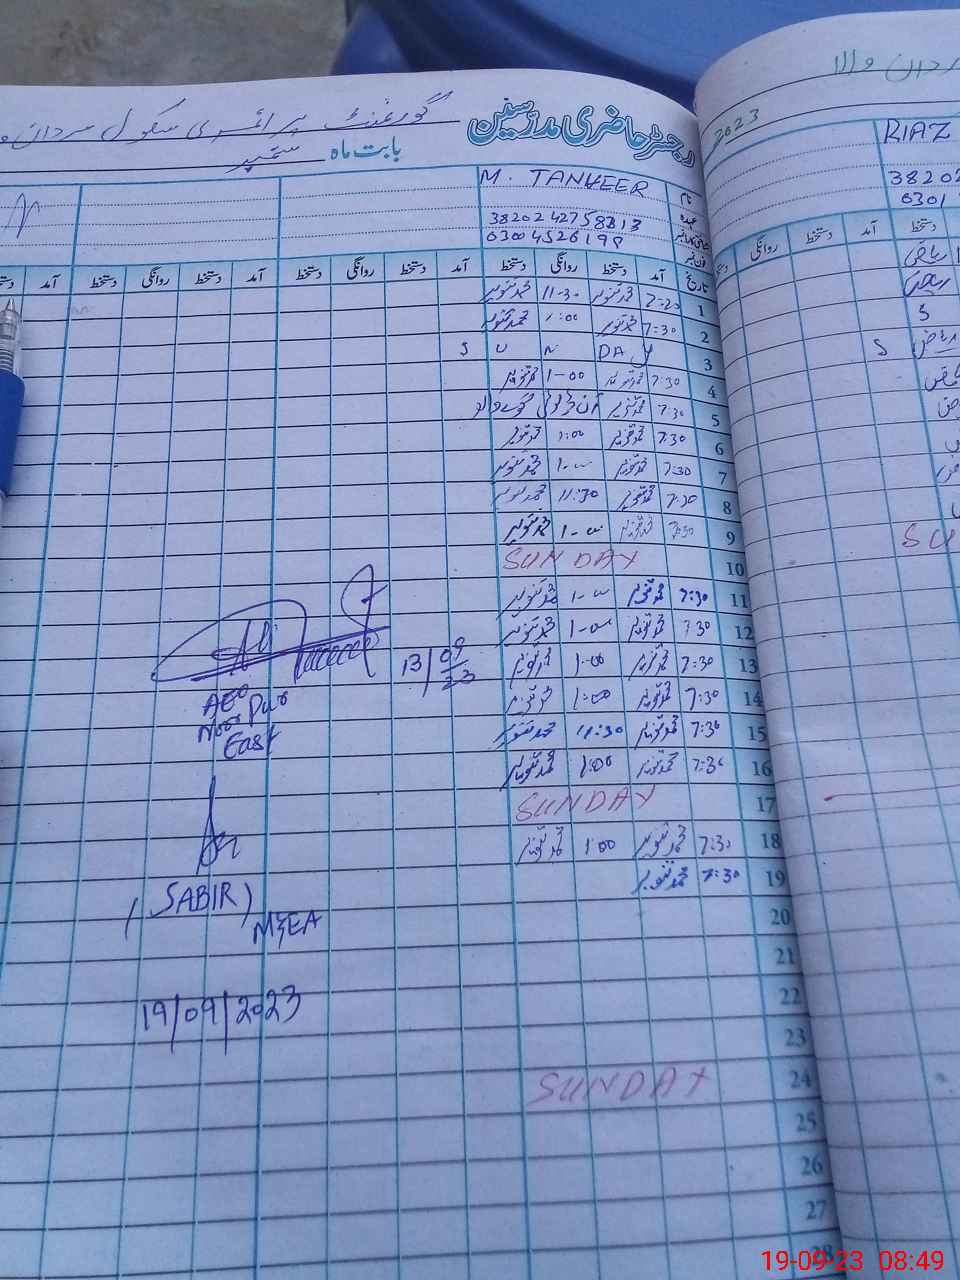 رجسٹر حاضری مدرسین
گورنمنٹ پرائمری سکول سردان
بابت ماہ ستمبر
2023
RIAZ
نام M. TANVEER
عہدہ
38202
3820242758313
03004526198
0301
تاریخ آمد دستخط روانگی دستخط آمد دستخط روانگی دستخط آمد دستخط روانگی دستخط آمد
آمد دستخط روانگی
1 7:20 محمد تنویر 11-30 محمد تنویر
2 7:30 محمد تنویر 1:00 محمد تنویر
3 S U N DAY
4 7:30 محمد تنویر 1-00 محمد تنویر
5 7:30 محمد تنویر
6 7:30 محمد تنویر 1:00 محمد تنویر
7 7:30 محمد تنویر 1-00 محمد تنویر
8 7:30 محمد تنویر 11:30 محمد تنویر
9 7:30 محمد تنویر 1-00 محمد تنویر
10 SUNDAY
11 7:30 محمد تنویر 1-00 محمد تنویر
12 7:30 محمد تنویر 1-00 محمد تنویر
13 7:30 محمد تنویر 1:00 محمد تنویر
14 7:30 محمد تنویر 1:00 محمد تنویر
15 7:30 محمد تنویر 11:30 محمد تنویر
16 7:30 محمد تنویر 1:00 محمد تنویر
17 SUNDAY
18 7:30 محمد تنویر 1:00 محمد تنویر
19 7:30 محمد تنویر
20
21
22
23
24 SUNDAY
25
26
27
28
13/09/23
AEO
Noor Pur
East
(SABIR)
MEA
19/09/2023
19-09-23 08:49